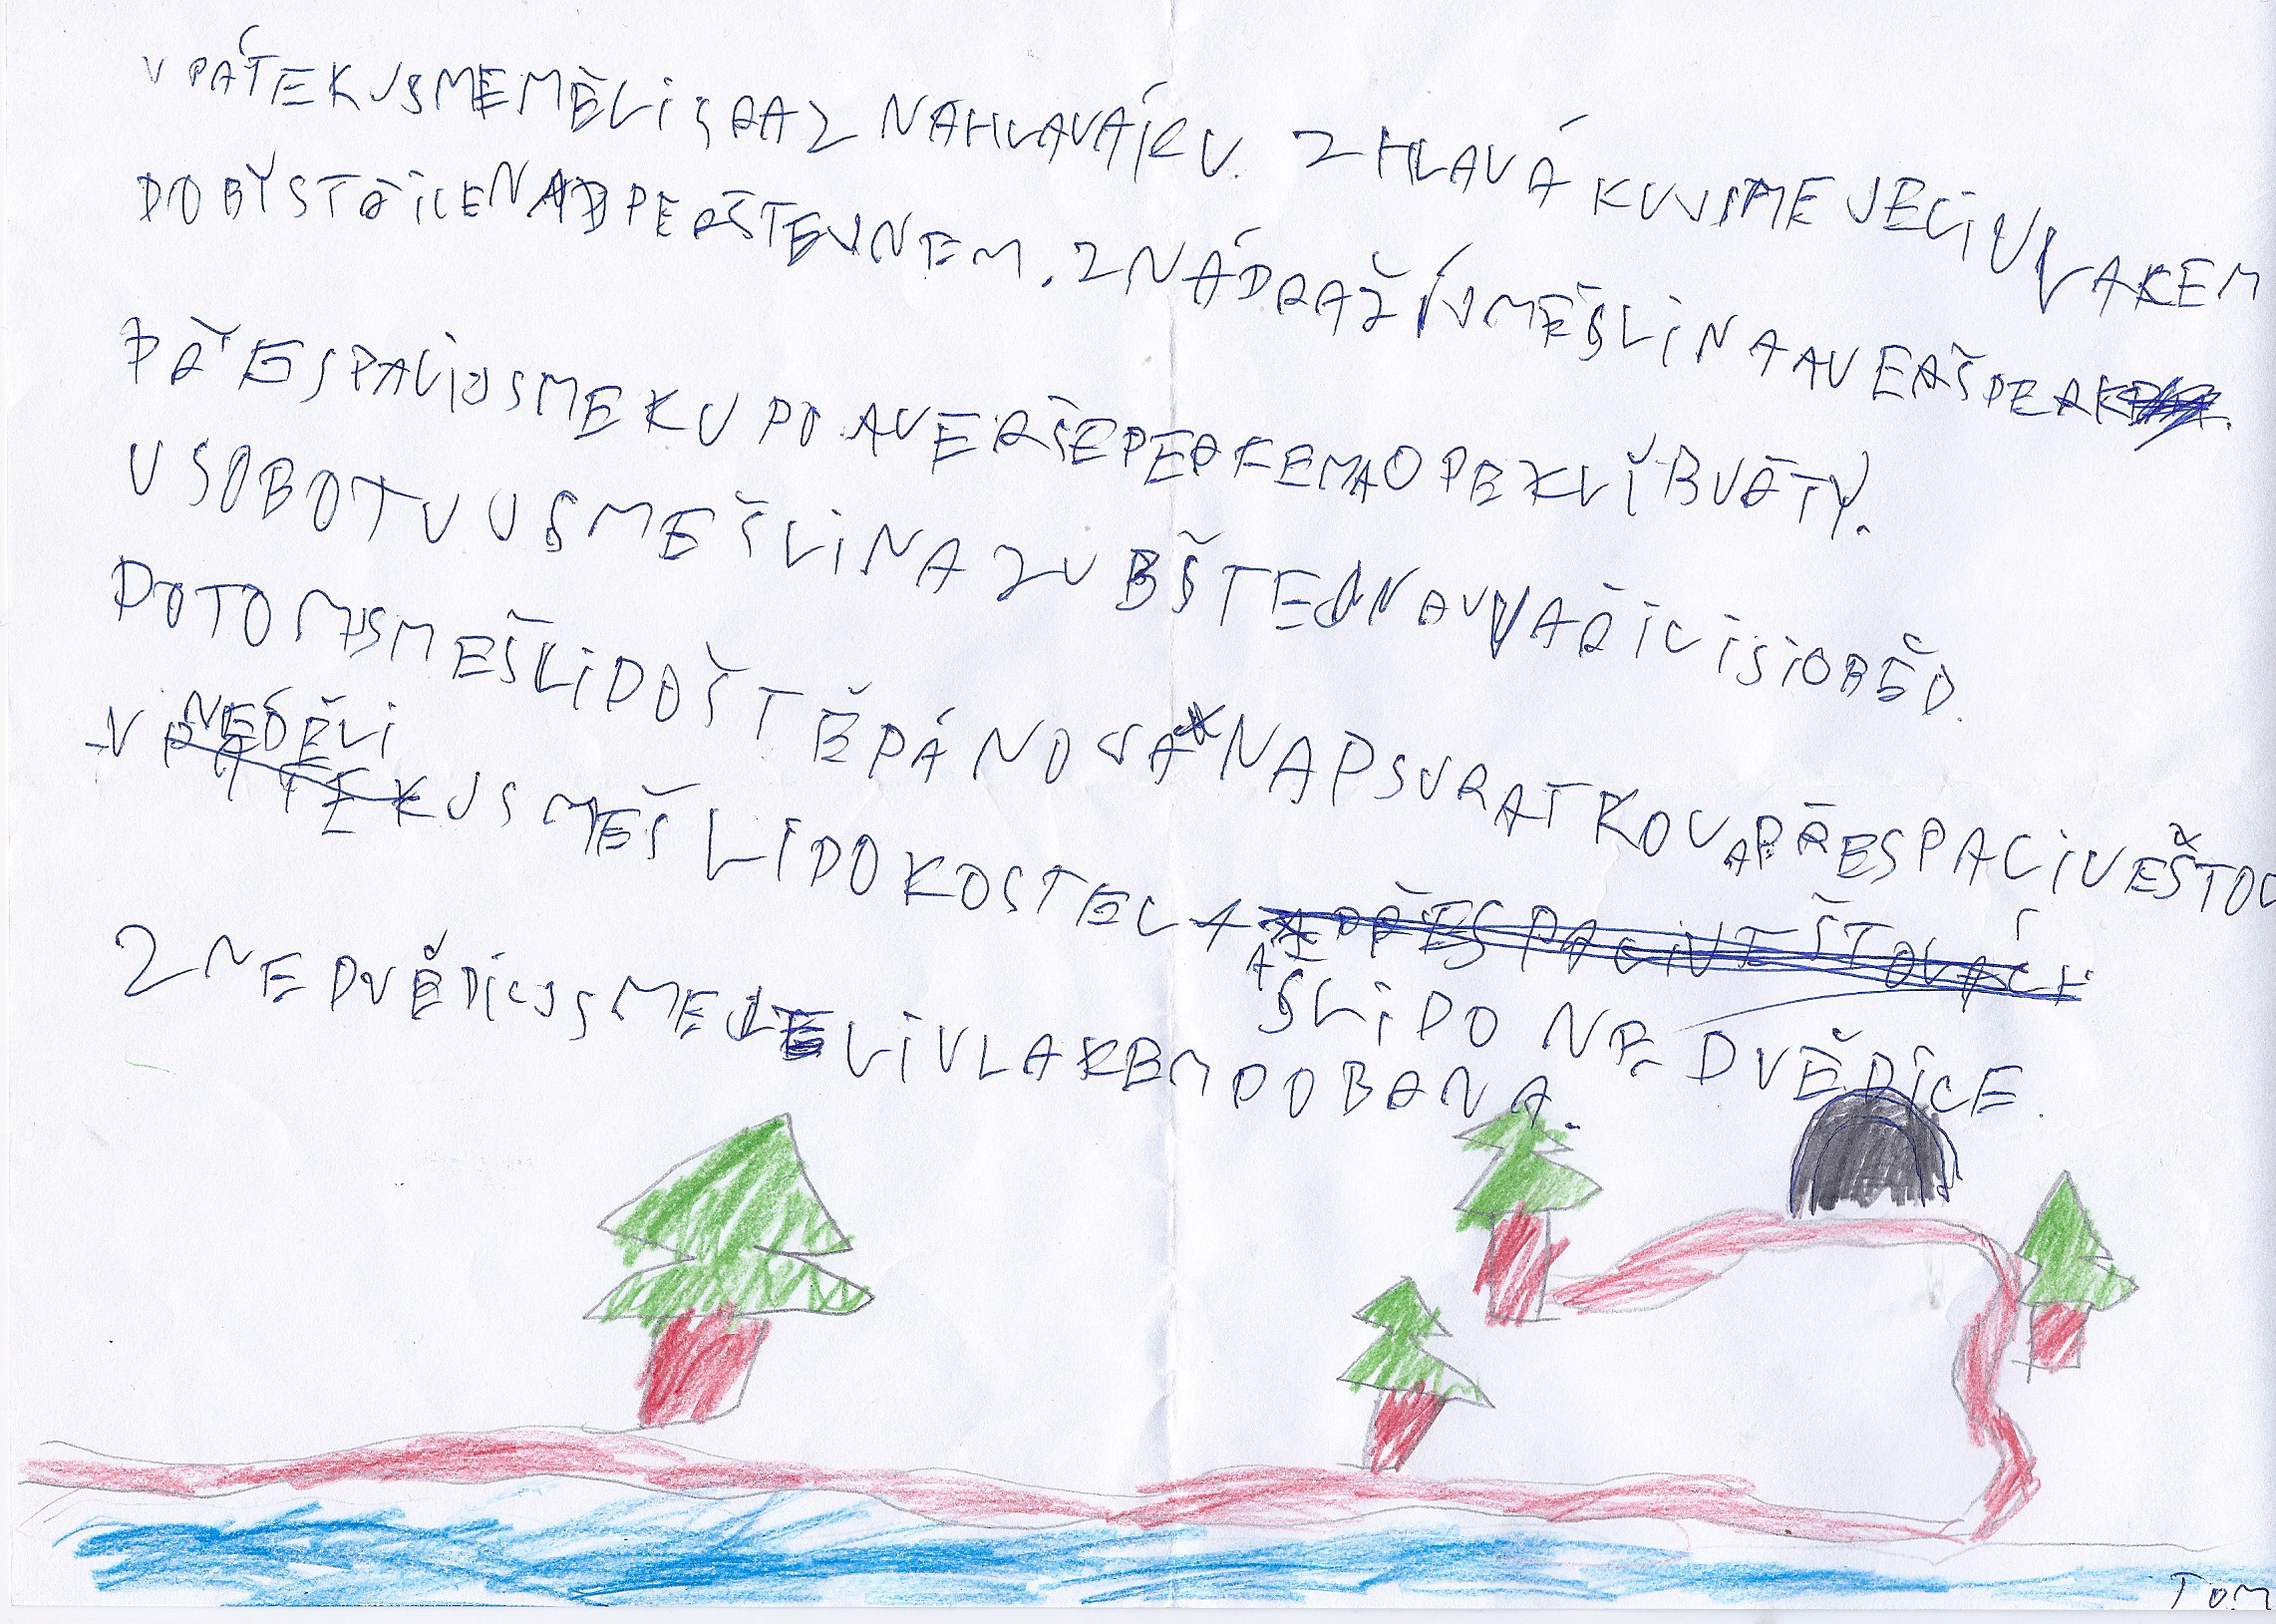 V PÁTEK JSME MĚLI SRAZ NA HLAVÁKU. Z HLAVÁKU JSME JELI VLAKEM
DO BYSTŘICE NAD PERŠTEJNEM. Z NÁDRAŽÍ JSME ŠLI NA AUERŠPERK.
PŘESPALI JSME KU PO AVERŠEPERKEM A OPEKLI BUŘTY.
V SOBOTU JSME ŠLI NA ZUBŠTEJN A UVAŘILI SI OBĚD.
POTOM JSME ŠLI DO ŠTĚPÁNOVA NAD SVRATKOU A PŘESPALI VE ŠTOL
V NEDĚLI JSME ŠLI DO KOSTELA
A ŠLI DO NEDVĚDICE.
Z NEDVĚDICI JSME JELI VLAKEM DO BRNA.
TOM